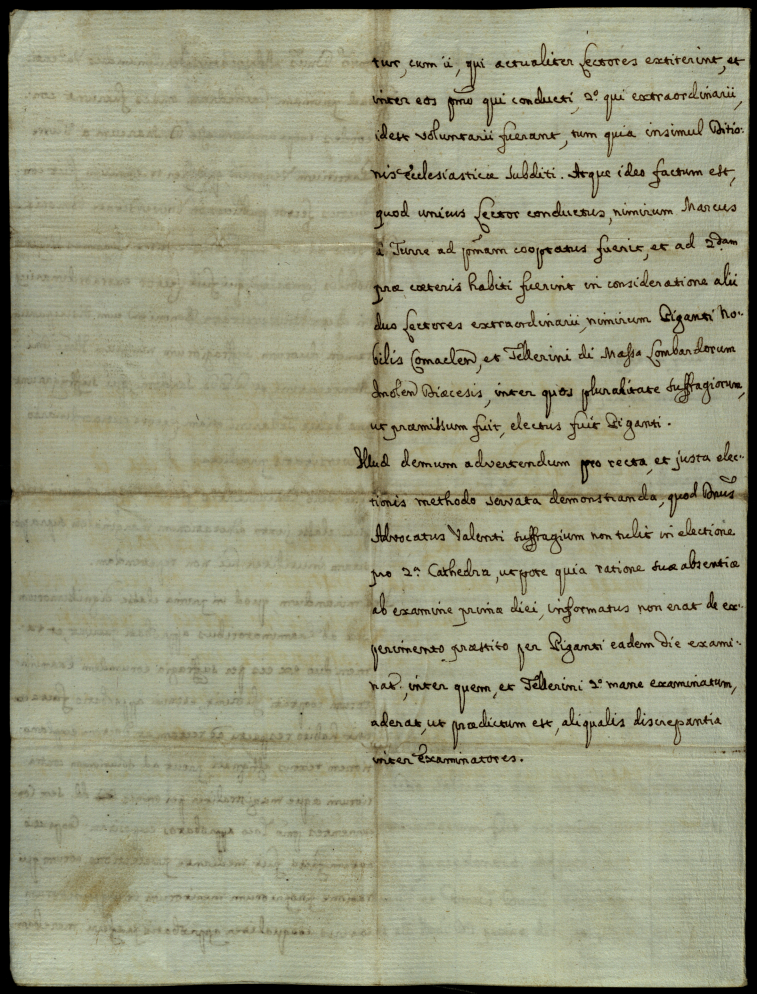 tur, cum ii, qui actualiter Lectores extiterint, et
inter eos pmo qui conducti, 2.º qui extraordinarii,
idest voluntarii fuerant, tum quia insimul Ditio:
nis Ecclesiasticæ subditi. Atque ideo factum est,
quod unicus Lector conductus, nimirum Marcus
a Turre ad pmam cooptatus fuerit, et ad 2dam
præ cæteris habiti fuerint in consideratione alii
duo Lectores extraordinarii, nimirum Piganti No:
bilis Comaclen, et Tellerini di Massa Lombardorum
Imolen Diæcesis, inter quos pluralitate suffragiorum,
ut præmissum fuit, electus fuit Piganti.
Illud demum advertendum pro recta, et justa elec:
tionis methodo servata demonstranda, quod Dnus
Advocatus Valenti suffragium non tulit in electione
pro 2.a Cathedra, utpote quia ratione suæ absentiæ
ab examine primæ diei, informatus non erat de ex:
perimento præstito per Piganti eadem die exami:
nat., inter quem, et Tellerini 2.º mane examinatum,
aderat, ut prædictum est, aliqualis discrepantia
inter Examinatores.